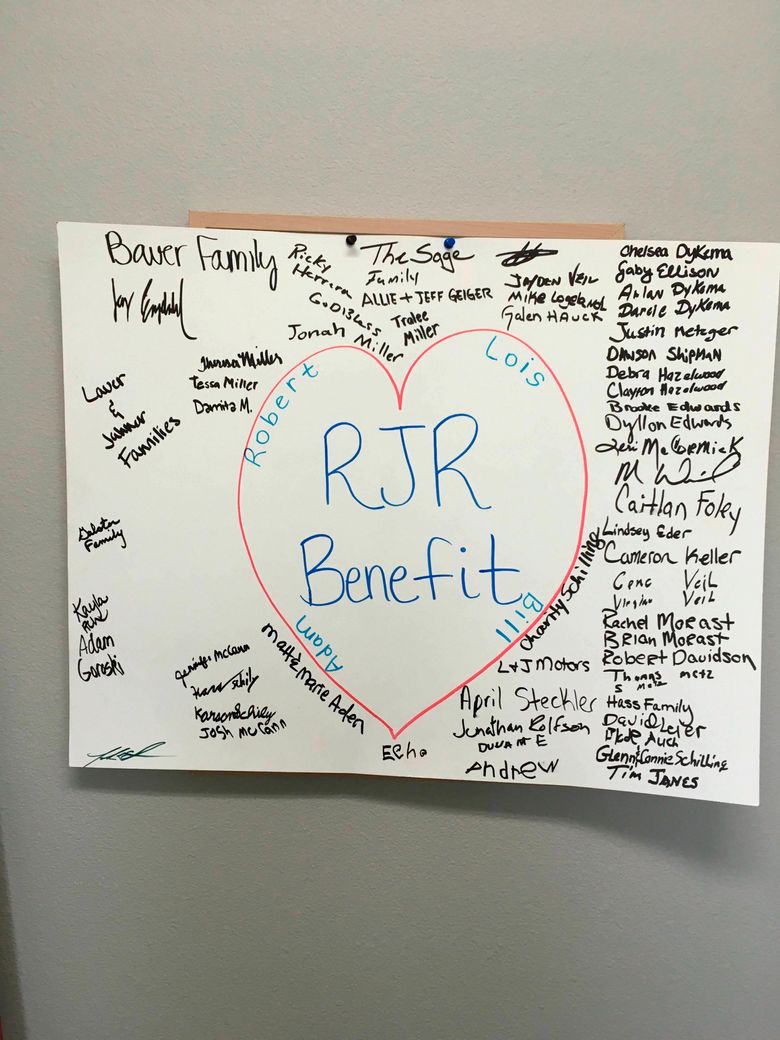 Bauer Family
Ricky
Herrera
GoDBless
Jonah Miller
The Sage
Family
ALLIE + JEFF GEIGER
Tralee
Miller
JAYDEN VEIL
Mike Logeland
Galen HAUCK
Theresa Miller
Tessa Miller
Damita M.
Lauer
&
Junner
Families
Family
Kayla
Adam
Goroski
Robert
Lois
RJR
Benefit
Adam
Bill
Charity Schilling
Matt & Marie Aden
Jennifer McCann
JOSh McCann
L & J Motors
April Steckler
Jonathan Rolfson
Echo
Andrew
Chelsea DyKema
Gaby Ellison
Arlan DyKema
Darcie DyKema
Justin Metzger
DAWSON ShipMAN
Debra Hazelwood
Clayton Hazelwood
Brooke Edwards
Dyllon Edwards
Jeri McCormicK
Caitlan Foley
Lindsey Eder
Cameron Keller
Gene Veil
Virginia Veil
Rachel MoRast
BRian MoRast
Robert Davidson
Thomas Metz
S Metz
Hass Family
David Leier
Auch
Glenn & Connie Schilling
Tim JANES